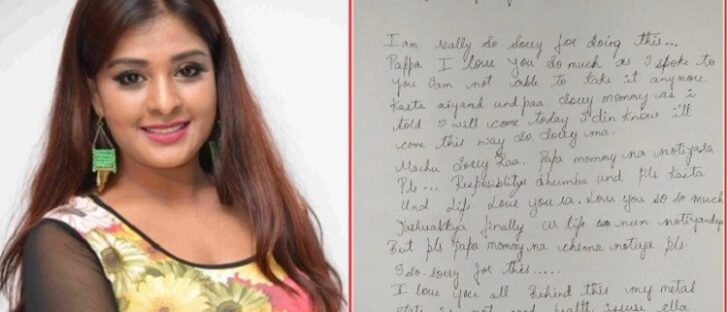 I am really so sorry for doing this...
Pappa I love you so much as I spoke to
you I am not able to take it anymore.
Kasta aiyand und paa. Sorry mommy as i
told I will come today I din know i'll
come this way so sorry ma.
Machu sorry kaa.. Papa mommy na
Pls... dhumba und pls kasta
und life love you ra. Love you so so much
finally life nun
But pls Papa mommy na chenna notiya pls
I so sorry for this.....
I love you all Behind this my metal
health issuse ella